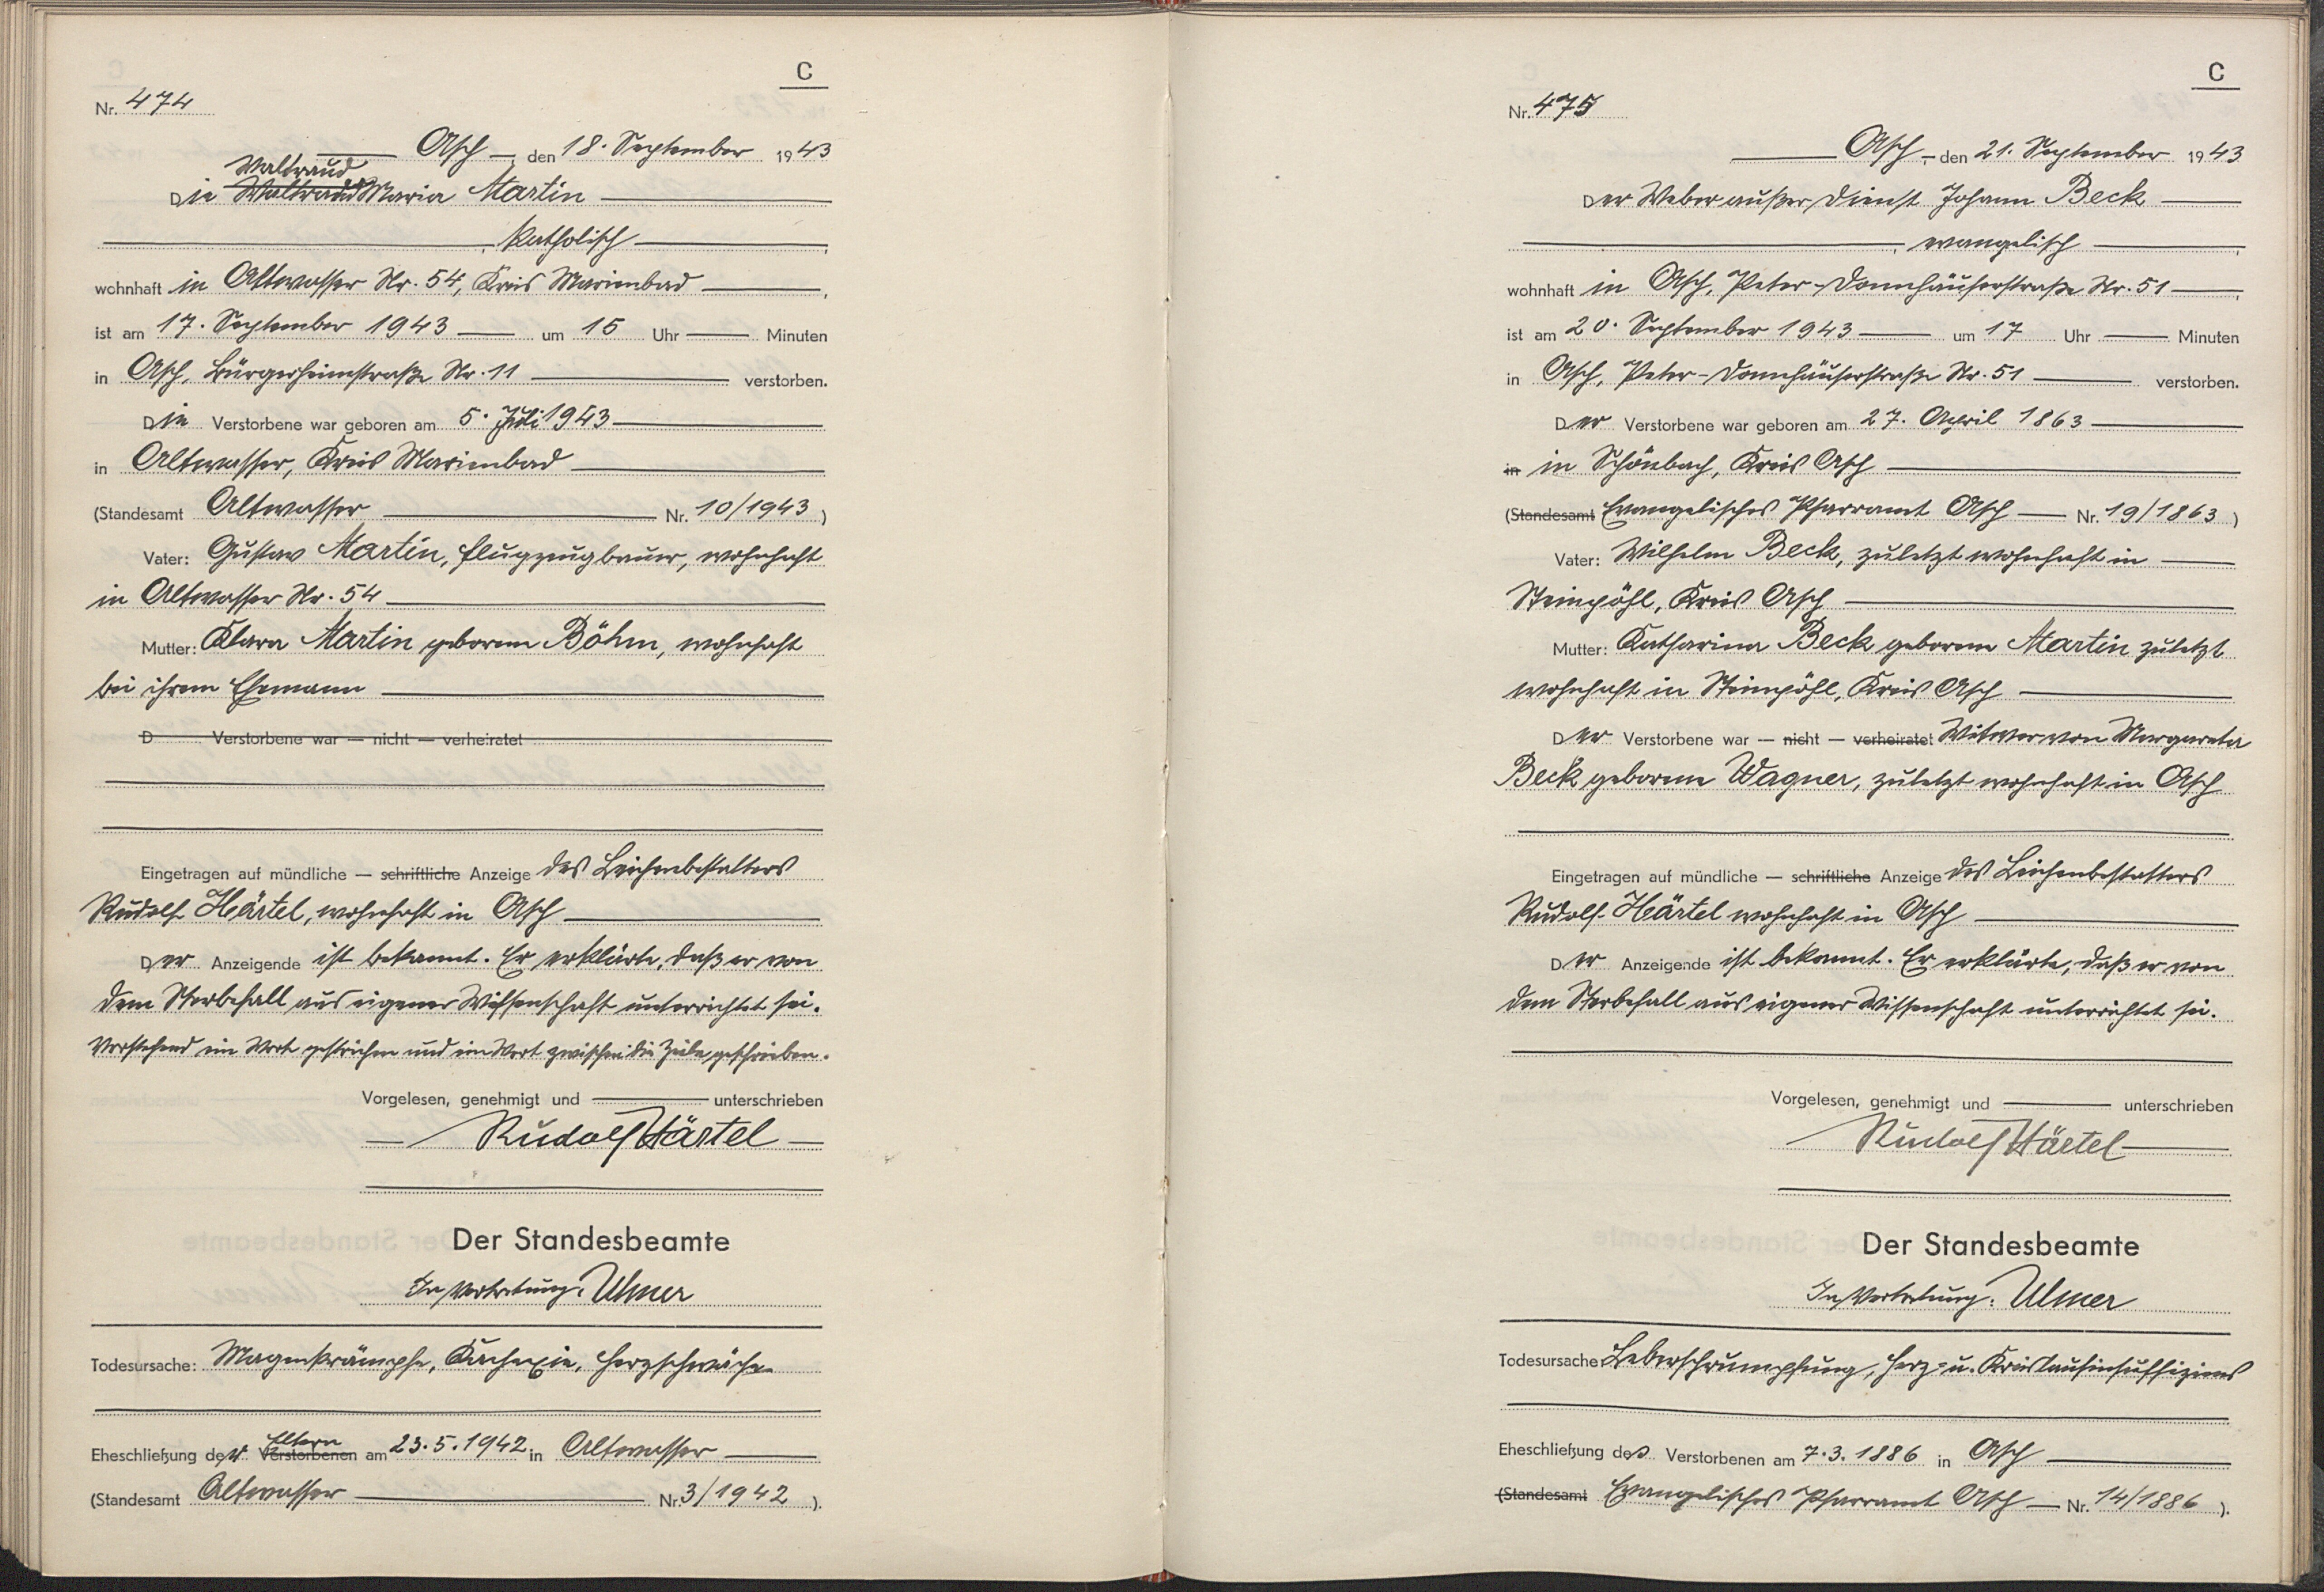 C
Nr. 474
Asch, den 18. September 1943
Waltraud
Die Waltraud Maria Martin
, katholisch ,
wohnhaft in Altwasser Nr. 54, Kreis Marienbad ,
ist am 17. September 1943 um 15 Uhr — Minuten
in Asch, Bürgerheimstraße Nr. 11 verstorben.
Die Verstorbene war geboren am 5. Juli 1943
in Altwasser, Kreis Marienbad
(Standesamt Altwasser Nr. 10/1943 )
Vater: Gustav Martin, Flugzeugbauer, wohnhaft
in Altwasser Nr. 54
Mutter: Klara Martin geborene Böhm, wohnhaft
bei ihrem Ehemann
D Verstorbene war — nicht — verheiratet
Eingetragen auf mündliche — schriftliche Anzeige des Leichenbestatters
Rudolf Härtel, wohnhaft in Asch
Der Anzeigende ist bekannt. Er erklärte, daß er von
dem Sterbefall aus eigener Wissenschaft unterrichtet sei.
Vorstehend ein Wort gestrichen und ein Wort zwischen die Zeile geschrieben.
Vorgelesen, genehmigt und — unterschrieben
Rudolf Härtel
Der Standesbeamte
In Vertretung: Ulmer
Todesursache: Magenkrämpfe, Kachexie, Herzschwäche
Eltern
Eheschließung der Verstorbenen am 23.5.1942 in Altwasser
(Standesamt Altwasser Nr. 3/1942 ).
C
Nr. 475
Asch, den 21. September 1943
Der Weber außer Dienst Johann Beck
, evangelisch ,
wohnhaft in Asch, Peter-Donnhäuserstraße Nr. 51 ,
ist am 20. September 1943 um 17 Uhr — Minuten
in Asch, Peter-Donnhäuserstraße Nr. 51 verstorben.
Der Verstorbene war geboren am 27. April 1863
in in Schönbach, Kreis Asch
(Standesamt Evangelisches Pfarramt Asch — Nr. 19/1863 )
Vater: Wilhelm Beck, zuletzt wohnhaft in
Steinpöhl, Kreis Asch
Mutter: Katharina Beck geborene Martin zuletzt
wohnhaft in Steinpöhl, Kreis Asch
Der Verstorbene war — nicht — verheiratet Witwer von Margareta
Beck geborene Wagner, zuletzt wohnhaft in Asch
Eingetragen auf mündliche — schriftliche Anzeige des Leichenbestatters
Rudolf Härtel wohnhaft in Asch
Der Anzeigende ist bekannt. Er erklärte, daß er von
dem Sterbefall aus eigener Wissenschaft unterrichtet sei.
Vorgelesen, genehmigt und — unterschrieben
Rudolf Härtel
Der Standesbeamte
In Vertretung: Ulmer
Todesursache Leberschrumpfung, Herz- u. Kreislaufinsuffiziens
Eheschließung des Verstorbenen am 7.3.1886 in Asch
(Standesamt Evangelisches Pfarramt Asch — Nr. 14/1886 ).